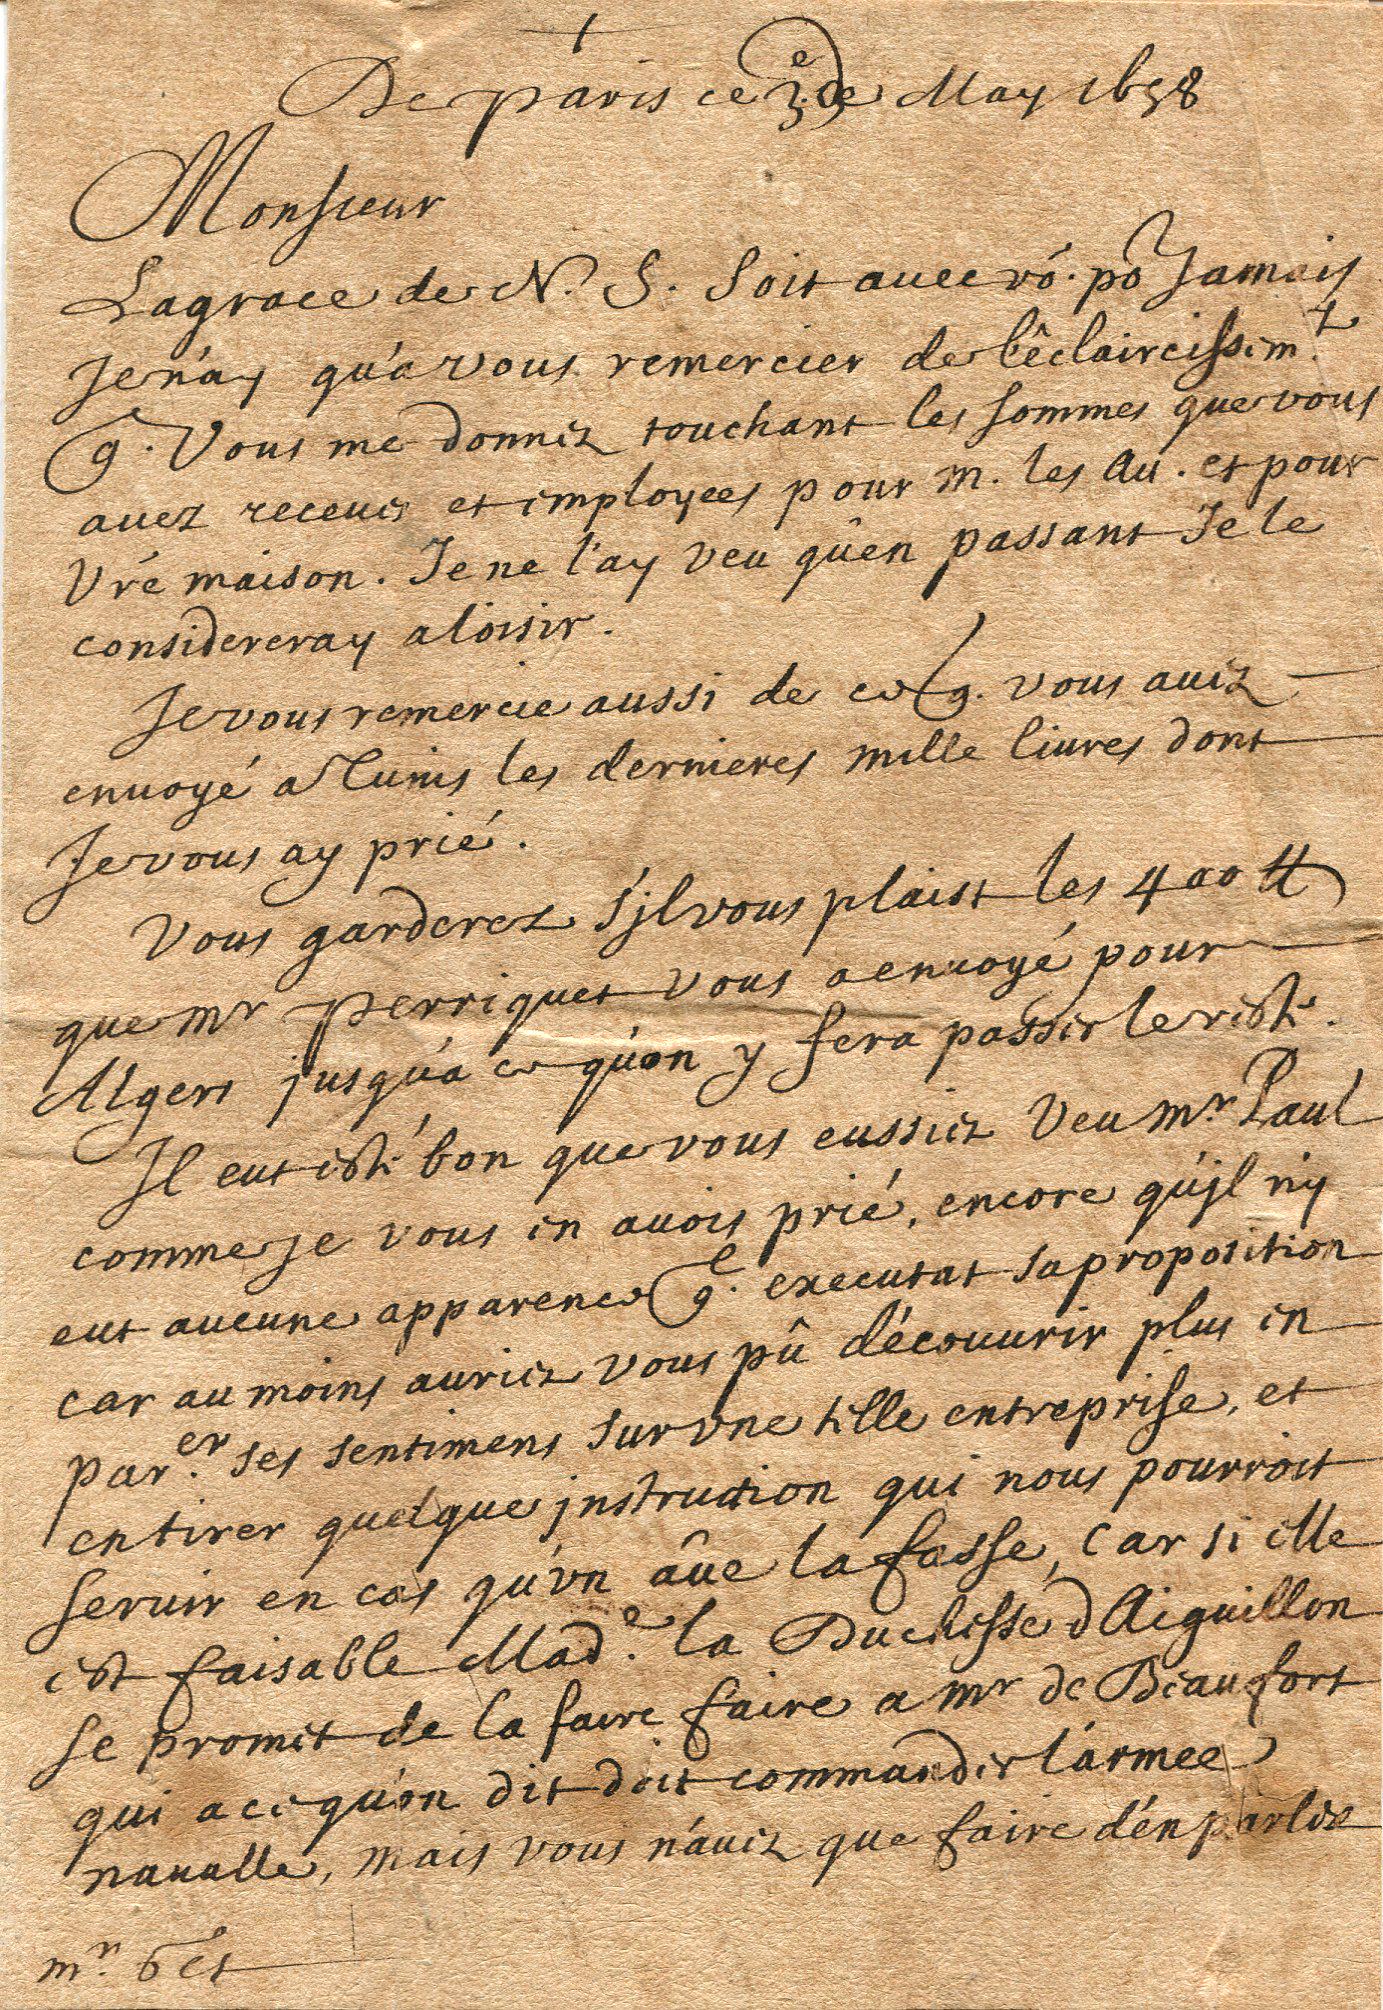 De paris ce 3.e de May 1658
Monsieur
La grace de N. S. soit auec vô. pô Jamais
Je n'ay qu'a vous remercier de l'êclaircissem.t
q. Vous me donnez touchant les sommes que vous
auez receues et employees pour m. les Au. et pour
Vré maison. Je ne l'ay veu qu'en passant Je le
considereray a loisir.
Je vous remercie aussi de ce q. vous auez
enuoyé a Tunis les dernieres mille liures dont
Je vous ay prié.
Vous garderez s'jl vous plaist les 400 ₶
que mr perriquet vous a enuoyé pour
Algers jusqu'a ce qu'on y fera passer le reste.
Il eut esté bon que vous eussiez veu mr. Paul
comme Je vous en auois prié, encore qu'jl n'y
eut aucune apparence q. executat sa proposition
car au moins auriez vous pû découurir plus en
par.er ses sentimens sur vne telle entreprise, et
en tirer quelque jnstruction qui nous pourroit
seruir en cas qu'vn aûe la fasse, car si elle
est faisable Mad.e la Duchesse d Aiguillon
se promet de la faire faire a mr de Beaufort
qui a ce qu'on dit doit commander l'armee
naualle, mais vous n'auez que faire d'en parler
m.n